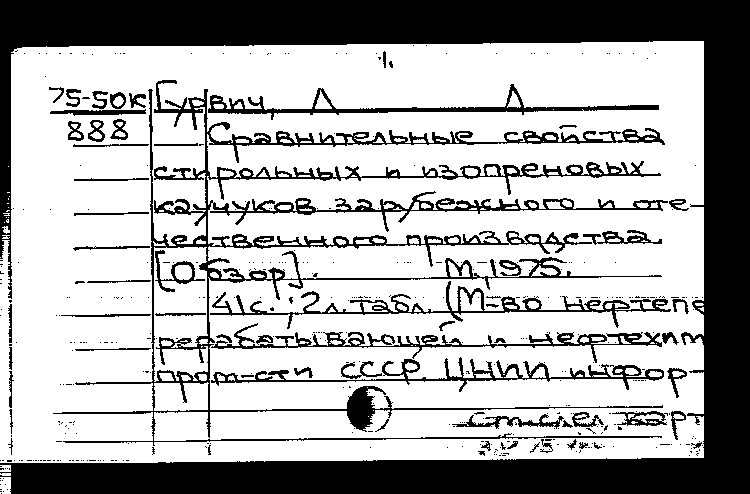 1.
75-50к Гурвич, Л Л
888 Сравнительные свойства
стирольных и изопреновых
каучуков зарубежного и оте-
чественного производства.
[Обзор]. М., 1975.
41с.; 2л. табл. (М-во нефтепе
рерабатывающей и нефтехим
пром-сти СССР. ЦНИИ инфор-
См. след. карт